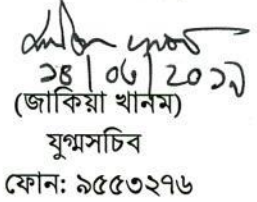 ১৪|০৬|২০১৯
(জাকিয়া খানম)
যুগ্মসচিব
ফোন: ৯৫৫৩২৭৬